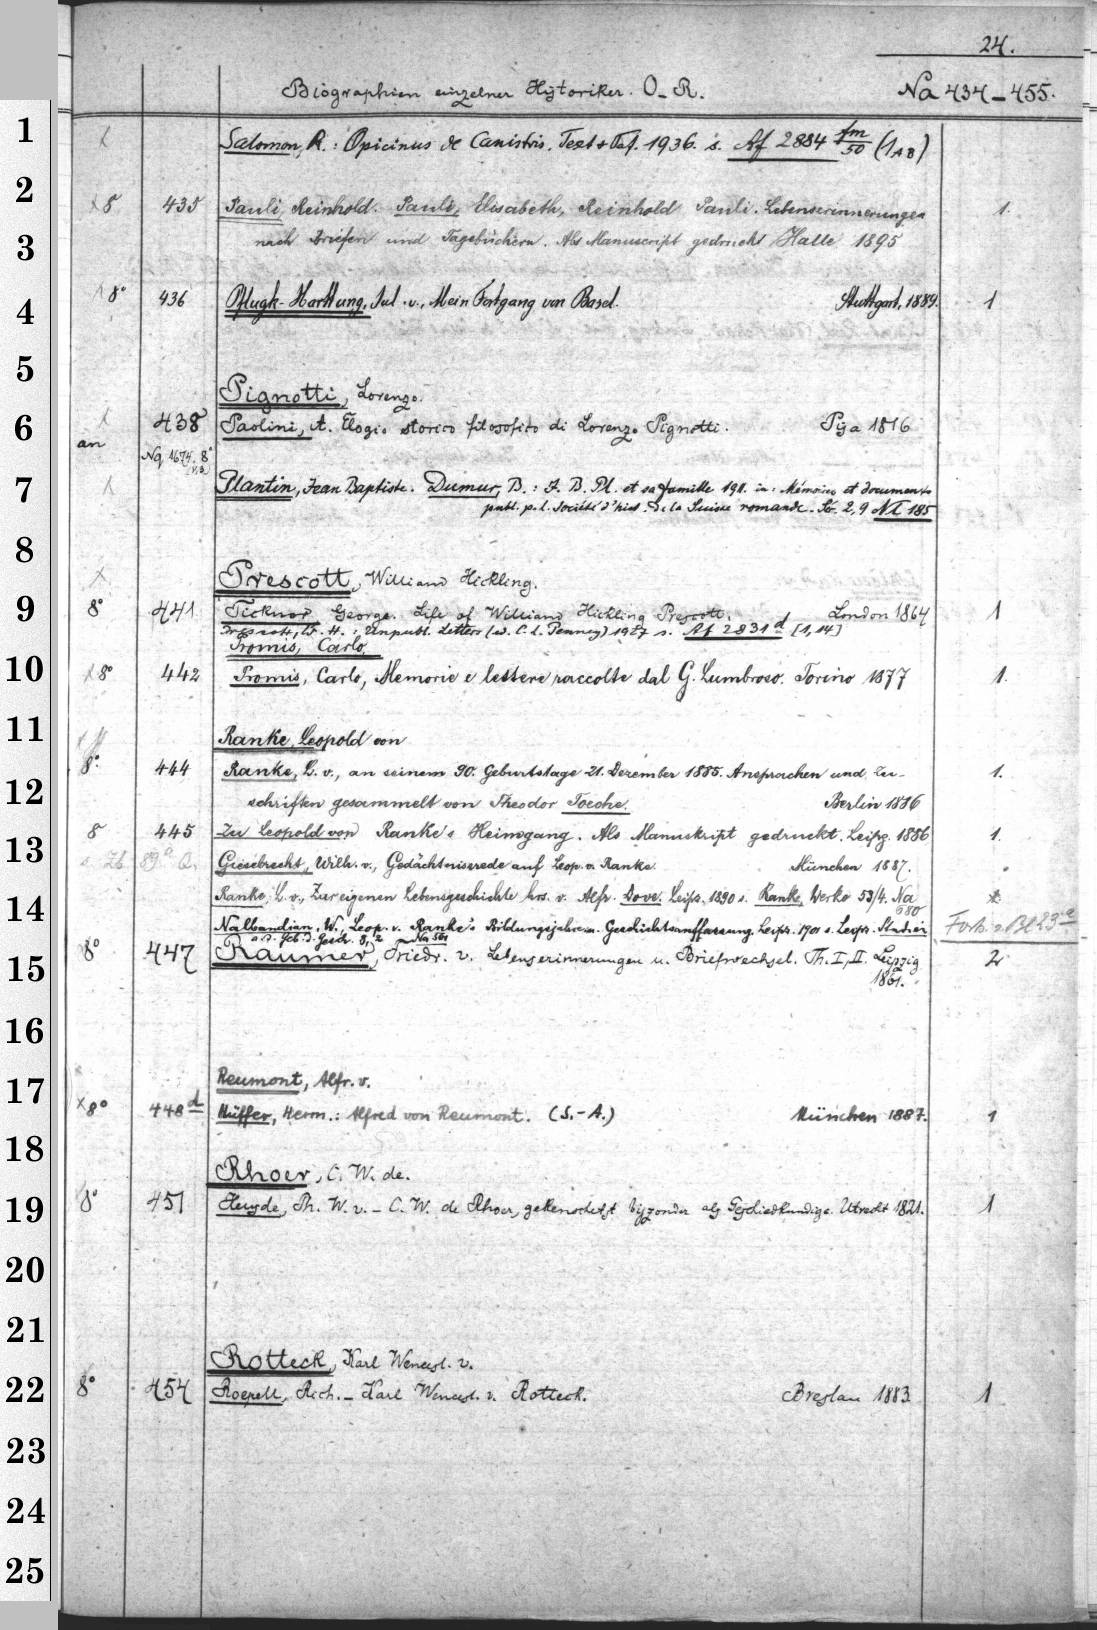 24.
Biographien einzelner Historiker. O-R. Na 434-455.
1 Salomon, R.: Opicinus de Canistris. Text + Taf. 1936. s. Af 2884 fm/50 (1AB)
2 x8 435 Pauli, Reinhold. Pauli, Elisabeth, Reinhold Pauli. Lebenserinnerungen 1.
3 nach Briefen und Tagebüchern. Als Manuscript gedruckt Halle 1895
4 8° 436 Pflugk-Harttung, Jul. v., Mein Fortgang von Basel. Stuttgart, 1889. 1
5
Pignotti, Lorenzo.
6 438 Paolini, A. Elogio storico filosofico di Lorenzo Pignotti. Pisa 1816
an
Nq 1674. 8°
7 Plantin, Jean Baptiste. Dumur, B.: J. B. Pl. et sa famille 1911. in: Mémoires et documents
publ. p. l. Société d'hist. de la Suisse romande. Sér. 2,9 NT 185
8
x Prescott, William Hickling.
9 8° 441 Ticknor, George. Life of William Hickling Prescott. London 1864 1
Prescott, W. H.: Unpubl. Letters (ed. C. L. Penney) 1927 s. Af 2831 d [1,14]
Promis, Carlo,
10 x8° 442 Promis, Carlo, Memorie e lettere raccolte dal G. Lumbroso. Torino 1877 1.
11 Ranke, Leopold von
8° 444 Ranke, L. v., an seinem 90. Geburtstage 21. Dezember 1885. Ansprachen und Zu- 1.
12 schriften gesammelt von Theodor Toeche. Berlin 1886
13 8 445 Zu Leopold von Ranke's Heimgang. Als Manuskript gedruckt. Leipz. 1886 1.
Giesebrecht, Wilh. v., Gedächtnisrede auf Leop. v. Ranke. München 1887.
14 Ranke, L. v., Zur eigenen Lebensgeschichte hrs. v. Alfr. Dove. Leipz. 1890 s. Ranke, Werke 53/4. Na 680
Nalbandian, W., Leop. v. Ranke's Bildungsjahre u. Geschichtsauffassung. Leipz. 1901 s. Leipz. Studien
a. d. Geb. d. Gesch. 8, 2 Na 501
Forts. s. Bl 23a
15 8° 447 Raumer, Friedr. v. Lebenserinnerungen u. Briefwechsel. Th. I, II. Leipzig 2
1861.
16
Reumont, Alfr. v.
17 x8° 448 d Hüffer, Herm.: Alfred von Reumont. (S.-A.) München 1887. 1
18 Rhoer, C. W. de.
19 8° 451 Heusde, Ph. W. v. - C. W. de Rhoer, gekenschetst bijzonder als Geschiedkundige. Utrecht 1821. 1
20
21
Rotteck, Karl Wencesl. v.
22 8° 454 Roepell, Rich. - Karl Wencesl. v. Rotteck. Breslau 1883 1
23
24
25